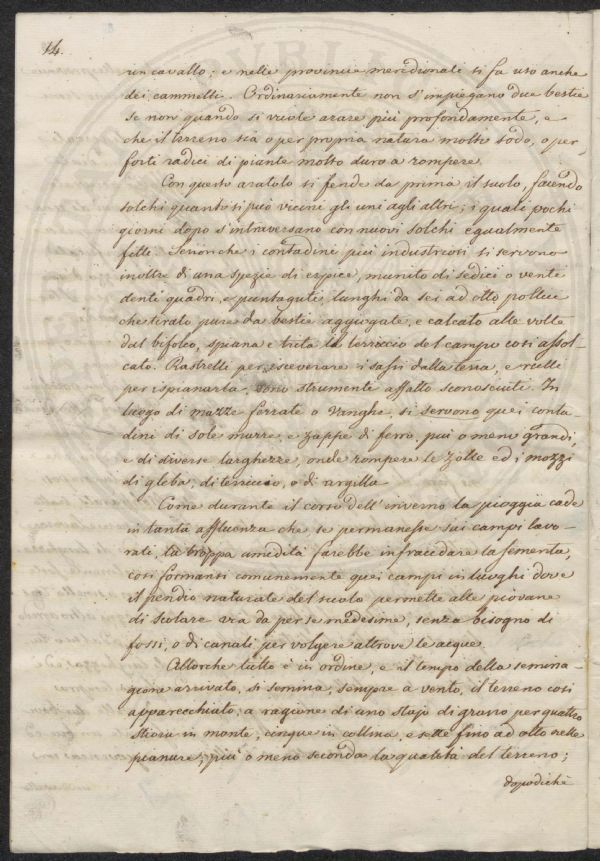 14.
un cavallo; e nelle provincie meridionali si fa uso anche
dei cammelli. Ordinariamente non s'impiegano due bestie
se non quando si vuole arare più profondamente, e
che il terreno sia o per propria natura molto sodo, o per
forti radici di piante molto duro a rompere.
Con questo aratolo si fende da prima il suolo, facendo
solchi quanto si può vicini gli uni agli altri; i quali pochi
giorni dopo s'intraversano con nuovi solchi egualmente
fitti. Senonche i contadini più industriosi si servono
inoltre di una spezie di erpice, munito di sedici o vente
denti quadri, e puntaguti, lunghi da sei ad otto pollici
che tirato pure da bestie aggiogate, e calcato alle volte
dal bifolco, spiana e trita la terriccio del campo così assol-
cato. Rastrelli per isceverare i sassi dalla terra, e
per ispianarla, sono strumenti affatto sconosciuti. In
luogo di mazze ferrate o vanghe, si servono quei conta-
dini di sole marre, e zappe di ferro, più o meno grandi,
e di diverse larghezze, onde rompere le zolle ed i mozzi
di gleba, di terriccio, o di argilla.
Come durante il corso dell'inverno la pioggia cade
in tanta affluenza che se permanesse sui campi lavo-
rati, la troppa umedità farebbe infracedare la sementa,
così formansi comunemente quei campi in luoghi dove
il pendio naturale del suolo permette alle piovane
di scolare via da per se medesime, senza bisogno di
fossi, o di canali per volgere altrove le acque.
Allorche tutto è in ordine, e il tempo della semina-
gione arrivato, si semina, sempre a vento, il terreno così
apparecchiato, a ragione di uno stajo di grano per quattro
stiora in monte, cinque in collina, e sette fino ad otto nelle
pianure; più o meno seconda la qualità del terreno;
dopodichè